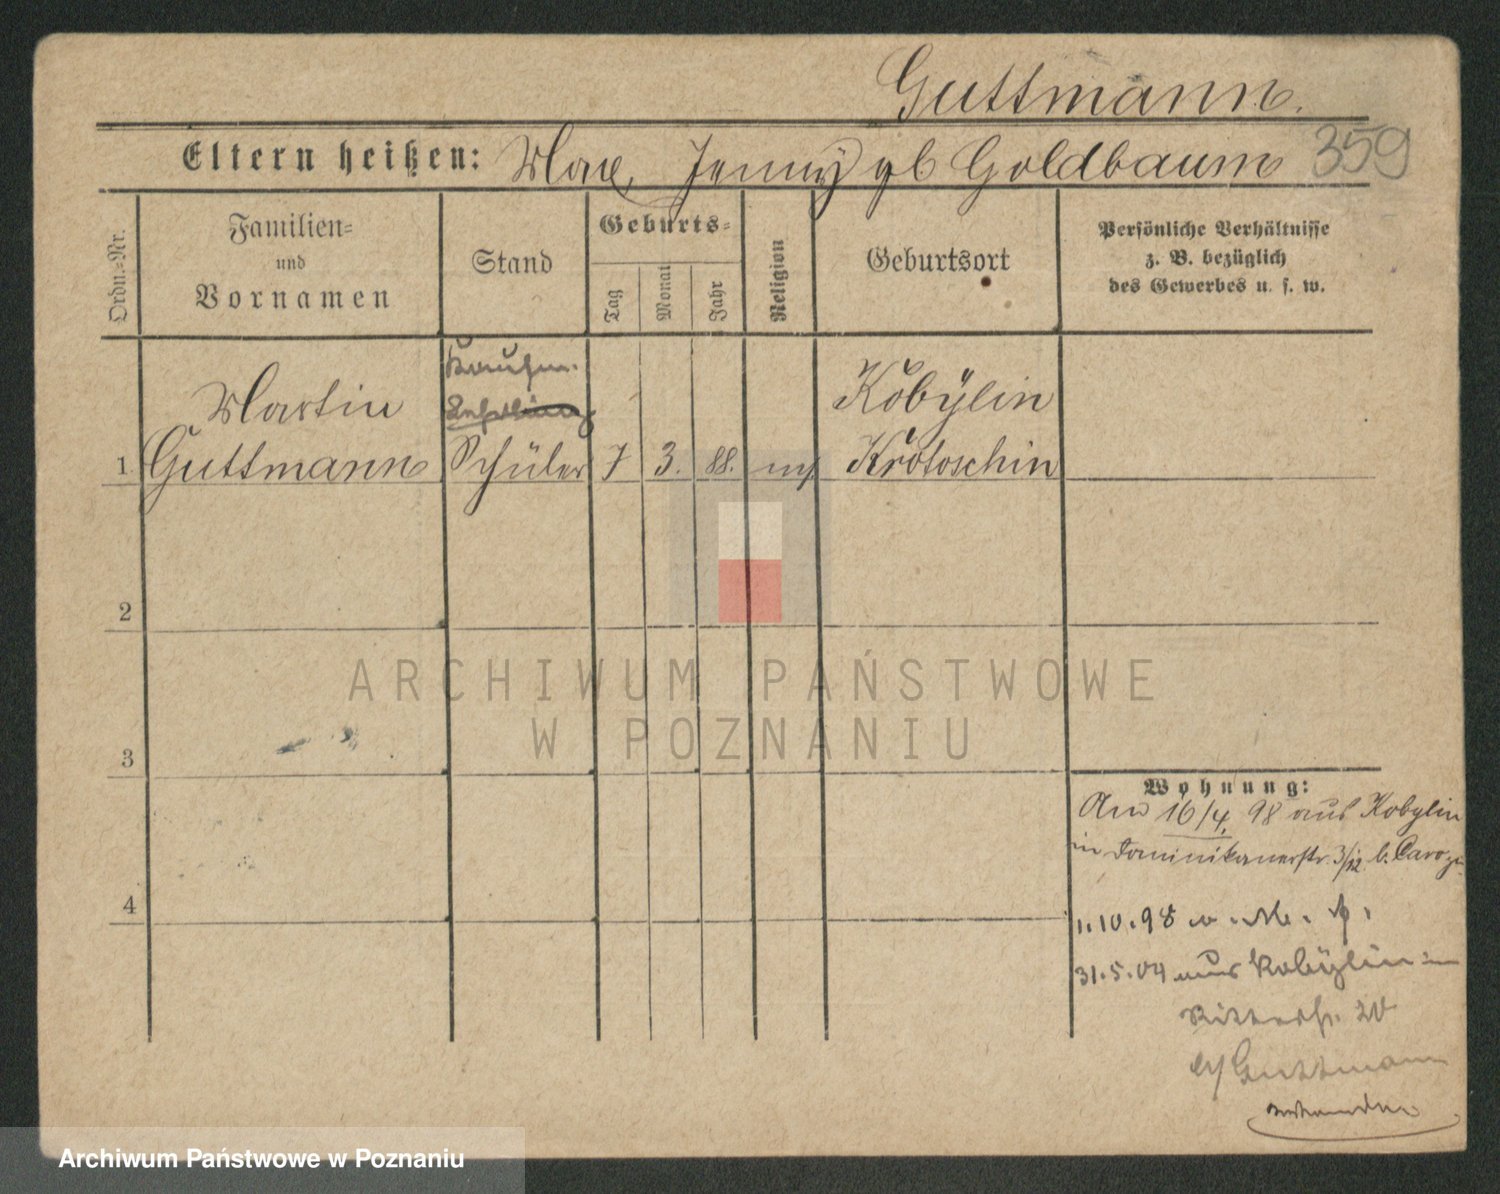 Guttmann.
Eltern heißen: Max, Jenny gb Goldbaum 359
Ordn.=Nr.
Familien=
und
Vornamen
Stand
Geburts=
Tag
Monat
Jahr
Religion
Geburtsort
Persönliche Verhältnisse
z. B. bezüglich
des Gewerbes u. s. w.
Kaufm.
Lehrling
Martin Kobylin
1 Guttmann Schüler 7 3. 88. Krotoschin
2
3
4
Wohnung:
16/4. 98 aus Kobylin
in Dominikanerstr. 3/12 b.
1.10.98
31.5.04 aus Kobylin in
Ritterstr. 20
b/ Guttmann
ARCHIWUM PAŃSTWOWE
W POZNANIU
Archiwum Państwowe w Poznaniu